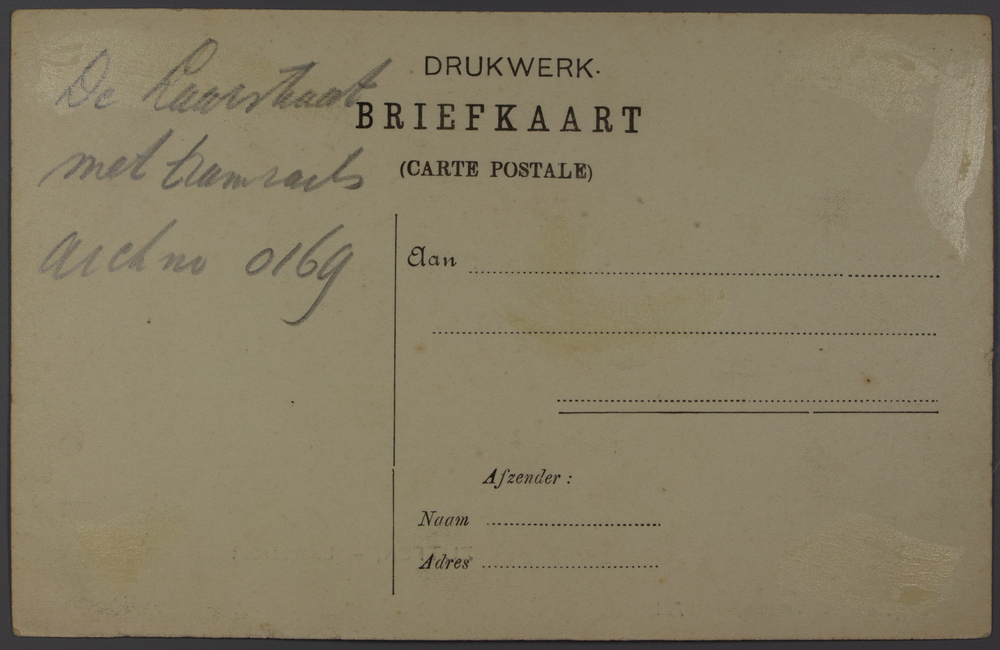 De Laarstraat
met tramrails
archno 0169
DRUKWERK.
BRIEFKAART
(CARTE POSTALE)
Aan
Afzender :
Naam
Adres